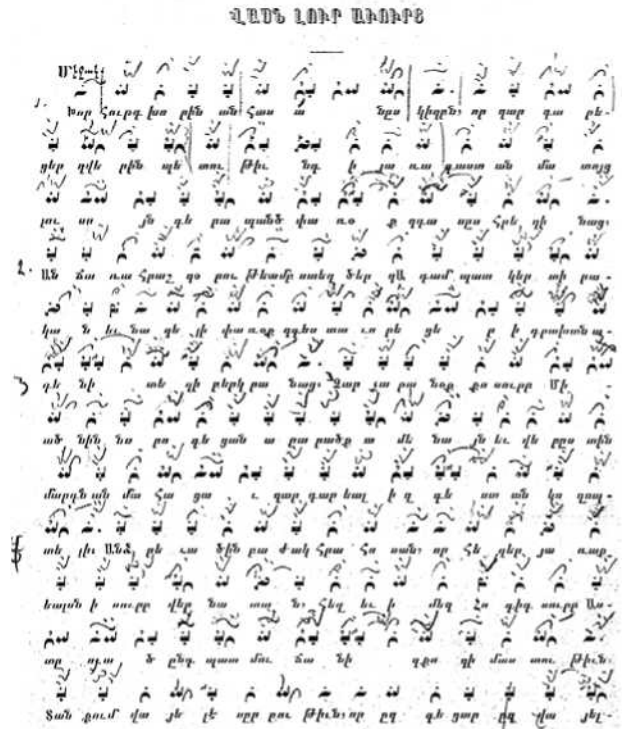 ՎԱՍՆ ԼՈՒՐ ԱՒՈՒՐՑ
1. Խոր հուրդ խո րին ան հաս ա նըս կիզբն, որ զար դա րե-
ցեր զվե րին պե տու թիւ նդ ի յա ռա գաստ ան մա տոյց
լու սո յն գե րա պանծ փա ռօ ք զդա սըս հրե ղի նաց,
2. Ան ճա ռա հրաշ զօ րու թեամբ ստեղ ծեր զԱ դամ պատ կեր տի րա-
կա ն եւ նա զե լի փա ռօք զգես տա ւո րե ցե ր ի դրախտն ա-
դե նի տե ղի բերկ րա նաց, Չար չա րա նօք քո սուրբ Մի
3 ած նին նո րո գե ցան ա րա րածք ա մե նա յն եւ վե րըս տին
մարդն ան մա հա ցա ւ զար դար եալ ի զ գե ստ ան կո ղոպ-
տե լի։ Անձ րե ւա ծին բա ժակ հրա հո սան, որ հե ղեր յա ռաք
եալսն ի սուրբ վեր նա տա ն, հեղ եւ ի մեզ Հո գիդ սուրբ Աս-
ընդ պատ մու ճա նի զքո զի մաս տու թիւն.
Տան քում վա յե լէ սըր բու թիւն, որ ըզ գե ցար ըզ վա յել-